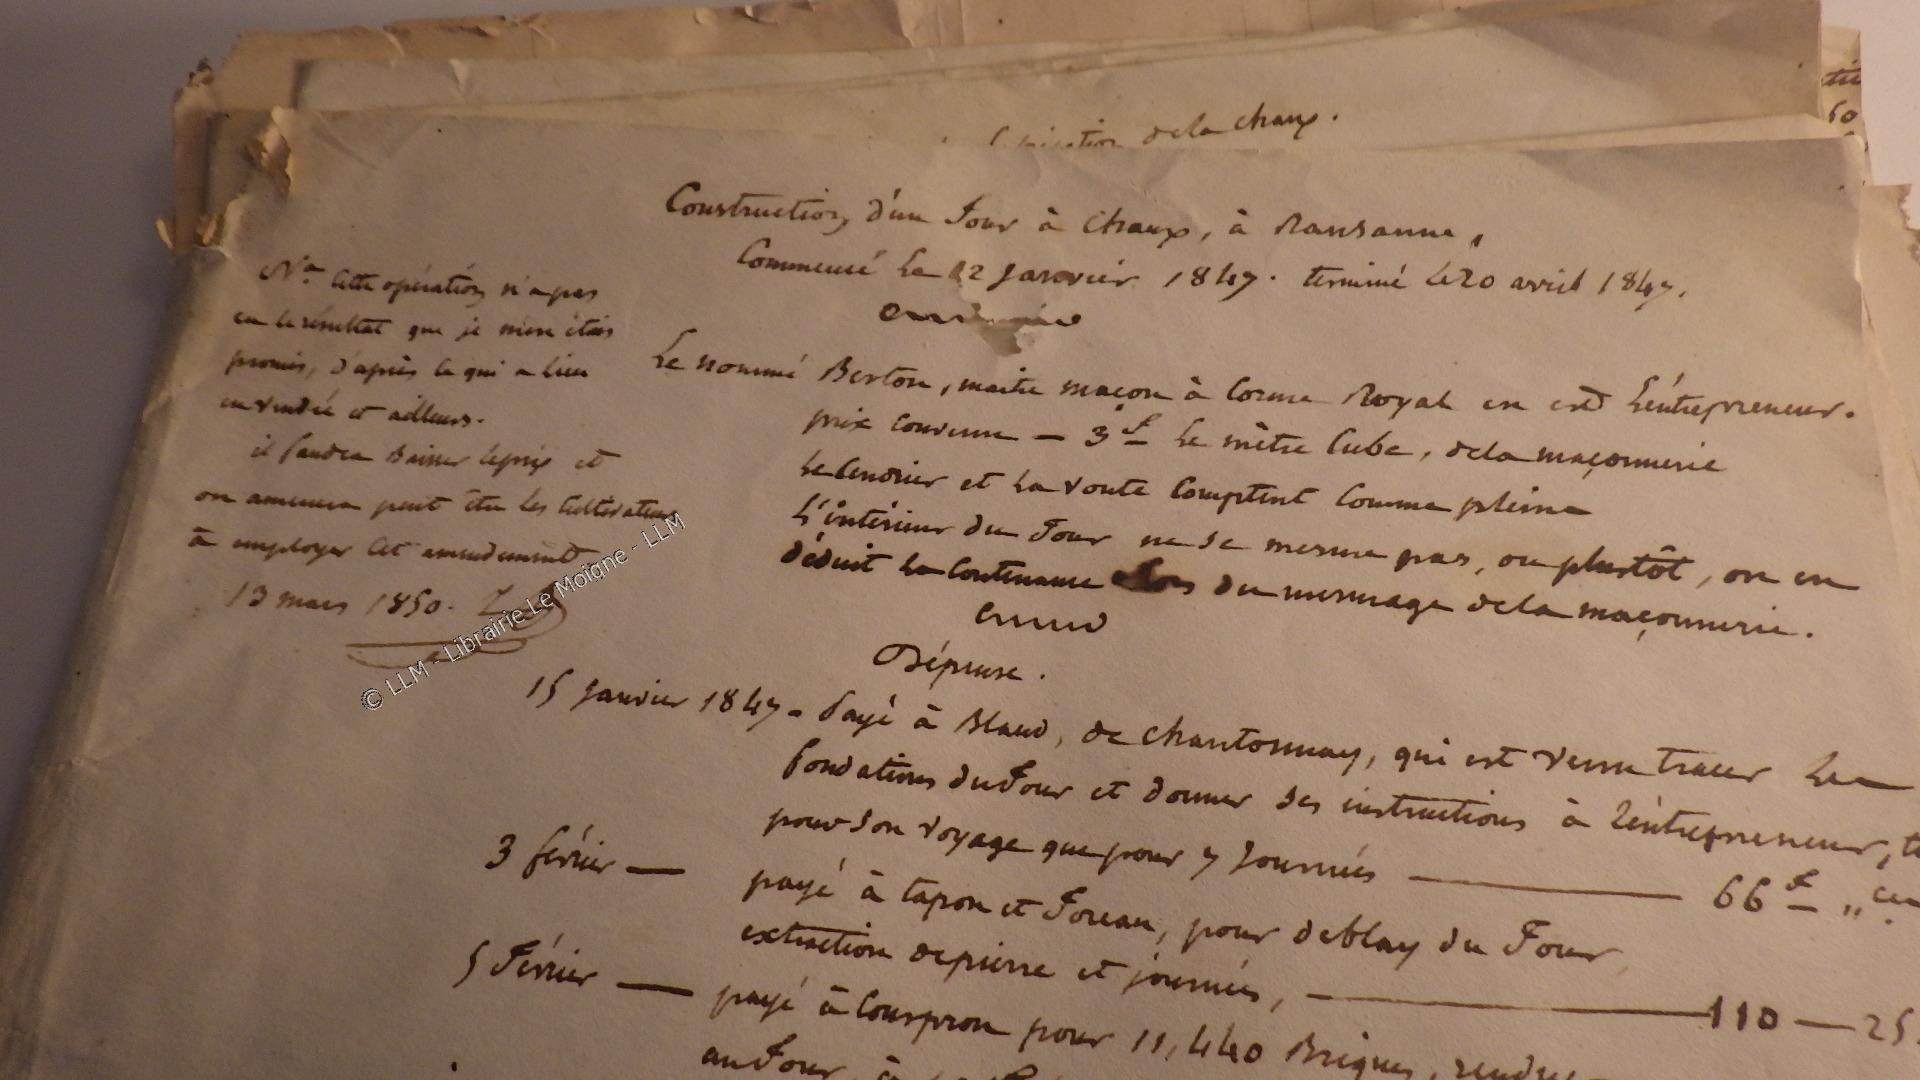 de la chaux.
Construction d'un Four à Chaux, à Ransanne,
Commencé le 12 Janvier 1847. terminé le 20 avril 1847.
Le nommé Berton, maître maçon à Corme Royal en est l'entrepreneur.
prix convenu — 3 f le mètre Cube, de la maçonnerie
le Cendrier et la voute Comptent Comme pleine
l'intérieur du Four ne se mesure pas, ou plustôt, on en
déduit la Contenance du mesurage de la maçonnerie.
Na Cette opération n'a pas
eu le résultat que je m'en étais
promis, d'après ce qui a lieu
en vendée et ailleurs.
il faudra baisser le prix et
on amenera peut être les Cultivateurs
à employer Cet amendement
13 mars 1850.
Dépense.
15 Janvier 1847 - Payé à Blaud, de Chantonnay, qui est venu tracer les
fondations du Four et donner ses instructions à l'entrepreneur, t
pour son voyage que pour 7 Journées — 66 f „ ce
3 février — payé à tapon et Foreau, pour deblay du Four,
extraction de pierre et journées, — 110 — 25
5 Février — payé à Couspron pour 11,440 Briques, rendues
au Four, à
tié
60
© LLM - Librairie Le Moigne - LLM